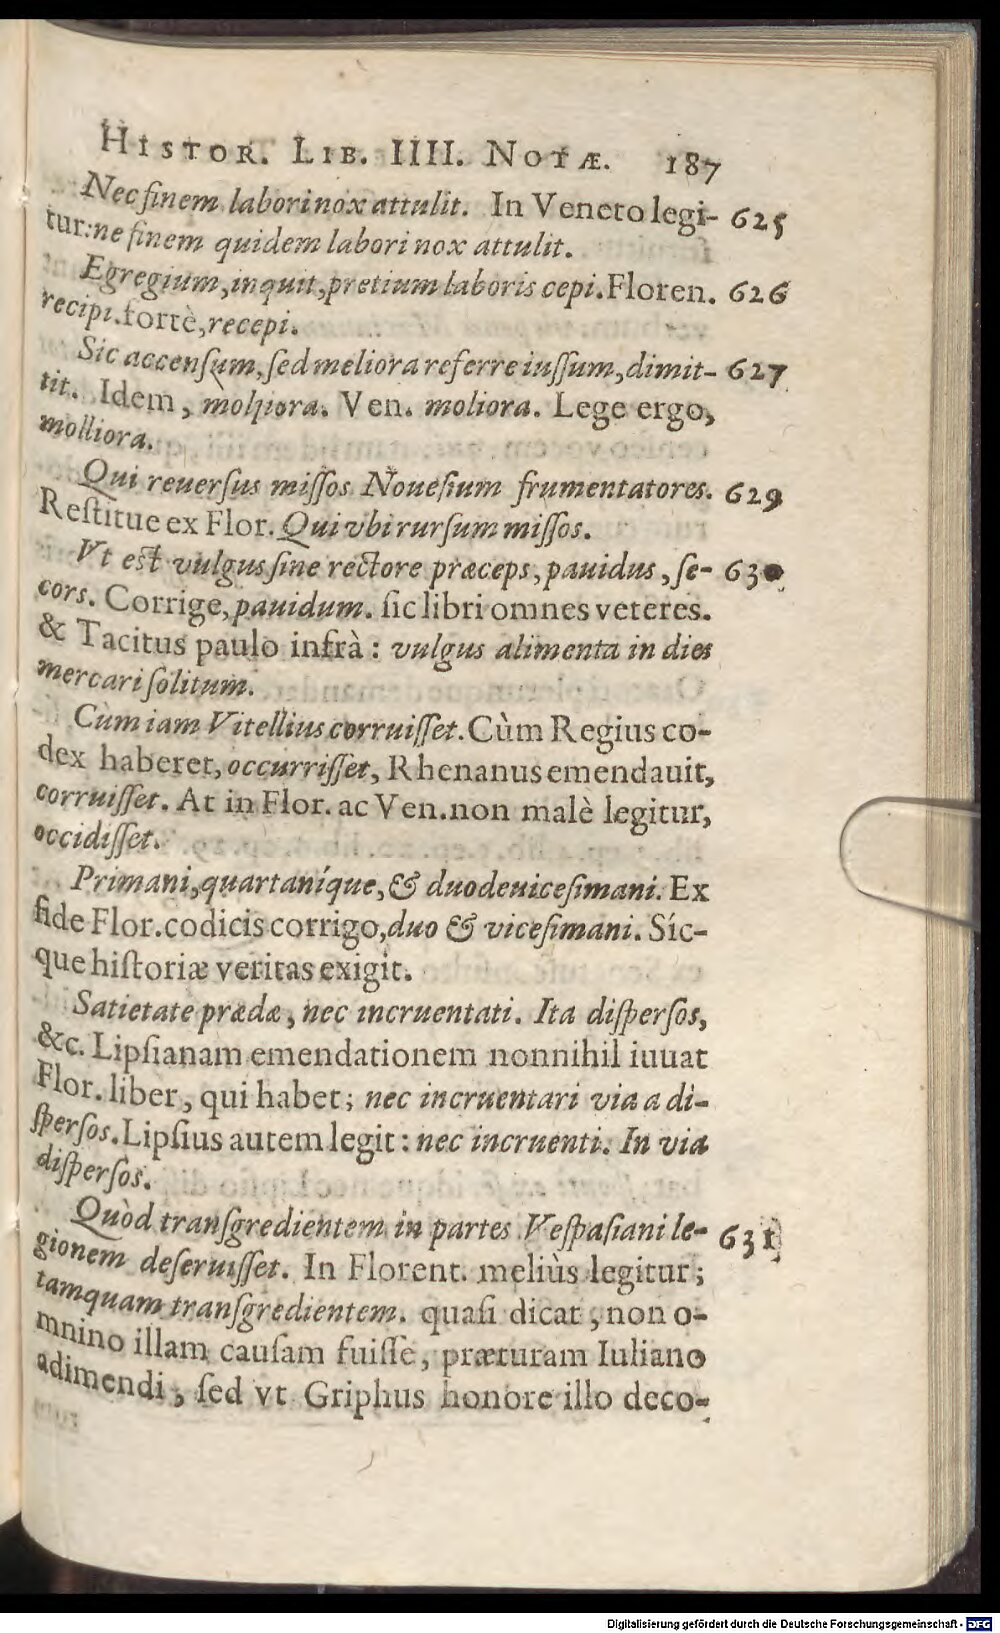 HISTOR. LIB. IIII. NOTÆ. 187
Nec finem labori nox attulit. In Veneto legi- 625
tur: ne finem quidem labori nox attulit.
Egregium, inquit, pretium laboris cepi. Floren. 626
recipi. fortè, recepi.
Sic accenſum, ſed meliora referre iuſſum, dimit- 627
tit. Idem, molpiora. Ven. moliora. Lege ergo,
molliora.
Qui reuerſus miſſos Noueſium frumentatores. 629
Reſtitue ex Flor. Qui vbi rurſum miſſos.
Vt eſt vulgus ſine rectore præceps, pauidus, ſe- 630
cors. Corrige, pauidum. ſic libri omnes veteres.
& Tacitus paulo infrà: vulgus alimenta in dies
mercari ſolitum.
Cùm iam Vitellius corruiſſet. Cùm Regius co-
dex haberet, occurriſſet, Rhenanus emendauit,
corruiſſet. At in Flor. ac Ven. non malè legitur,
occidiſſet.
Primani, quartaníque, & duodeuiceſimani. Ex
fide Flor. codicis corrigo, duo & viceſimani. Síc-
que hiſtoriæ veritas exigit.
Satietate prædæ, nec incruentati. Ita diſperſos,
&c. Lipſianam emendationem nonnihil iuuat
Flor. liber, qui habet; nec incruentari via a di-
ſperſos. Lipſius autem legit: nec incruenti. In via
diſperſos.
Quòd tranſgredientem in partes Veſpaſiani le- 631
gionem deſeruiſſet. In Florent. meliùs legitur;
tamquam tranſgredientem. quaſi dicat, non o-
mnino illam cauſam fuiſſe, præturam Iuliano
adimendi, ſed vt Griphus honore illo deco-
Digitalisierung gefördert durch die Deutsche Forschungsgemeinschaft - DFG